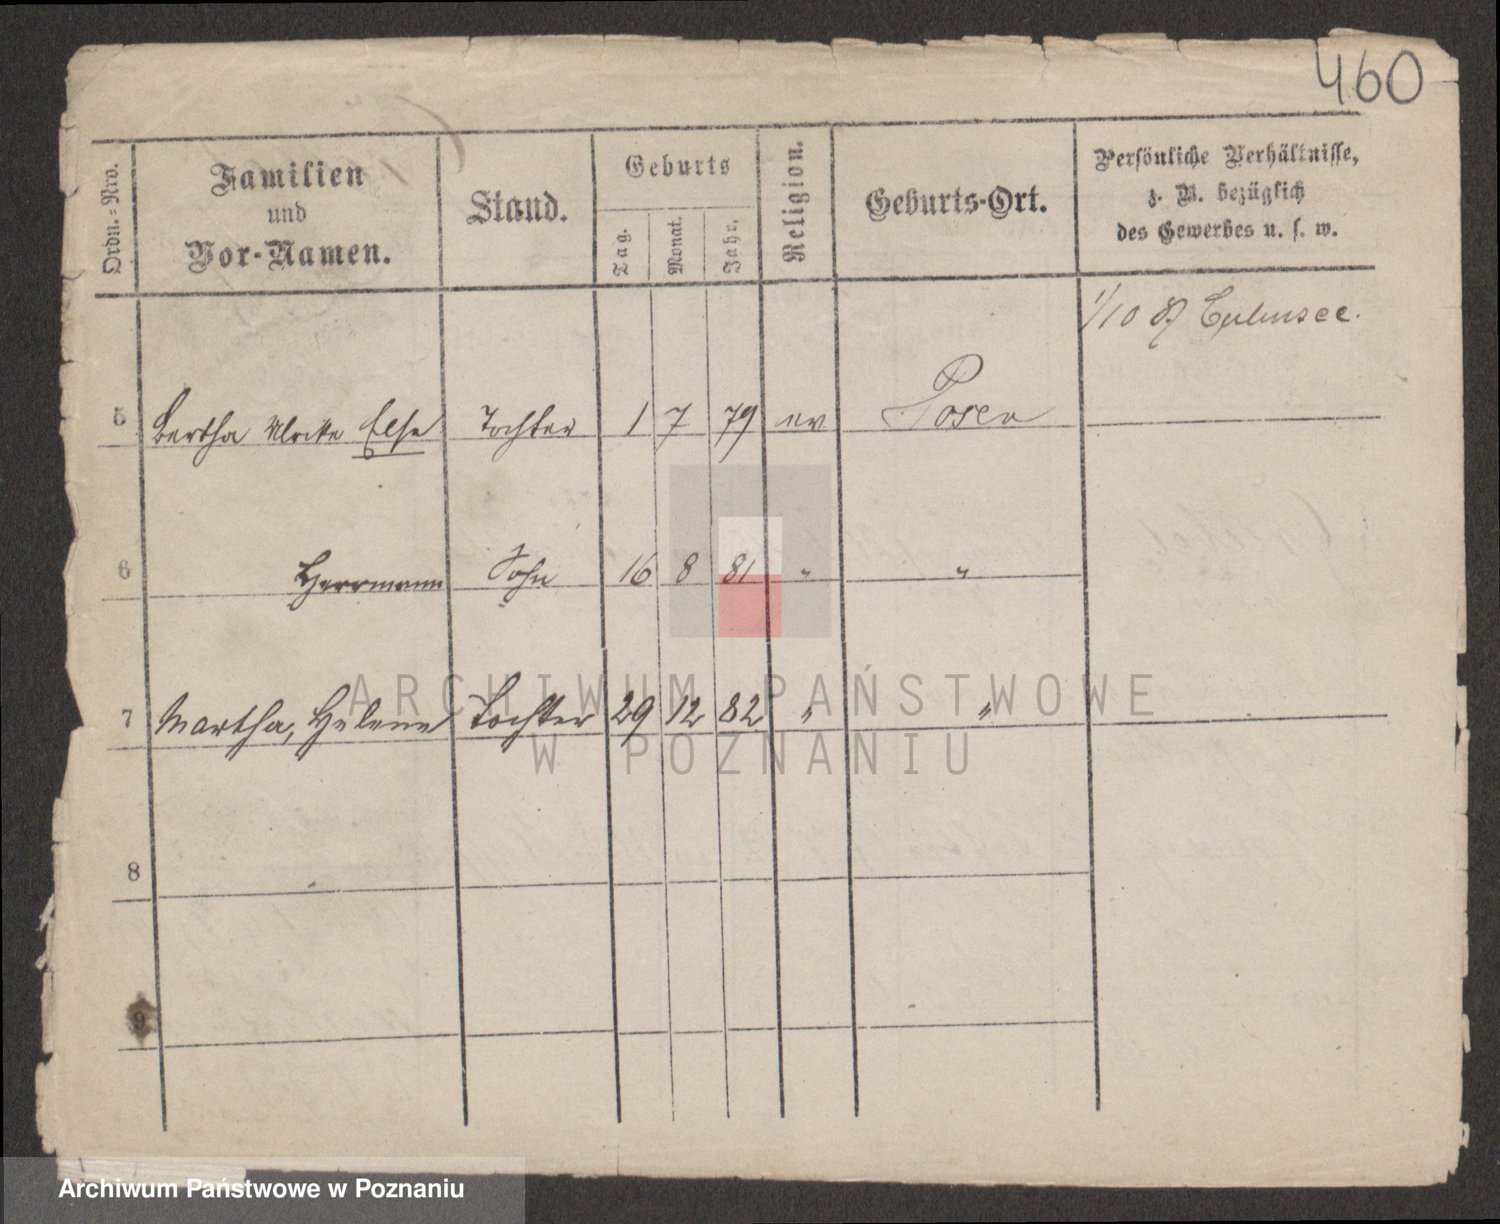 460
Ordn.=Nro.
Familien
und
Vor-Namen.
Stand.
Geburts
Tag.
Monat.
Jahr.
Religion.
Geburts-Ort.
Persönliche Verhältnisse,
z. B. bezüglich
des Gewerbes u. s. w.
1/10 87 Culmsee.
5 Bertha Ulrike Else Tochter 1 7 79 ev Posen
6 Herrmann Sohn 16 8 81 " "
7 Martha, Helene Tochter 29 12 82 " "
8
9
ARCHIWUM PAŃSTWOWE
W POZNANIU
Archiwum Państwowe w Poznaniu